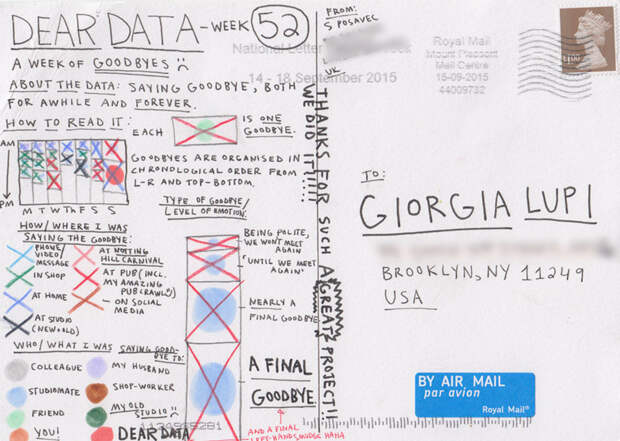 DEAR DATA - WEEK 52
A WEEK OF GOODBYES
ABOUT THE DATA: SAYING GOODBYE, BOTH
FOR AWHILE AND FOREVER.
HOW TO READ IT:
EACH IS ONE GOODBYE.
AM
PM
M T W Th F S S
GOODBYES ARE ORGANISED IN
CHRONOLOGICAL ORDER FROM
L-R AND TOP-BOTTOM.
HOW/WHERE I WAS
SAYING THE GOODBYE:
PHONE/
VIDEO/
MESSAGE
IN SHOP
AT HOME
AT STUDIO
(NEW & OLD)
AT NOTTING
HILL CARNIVAL
AT PUB (INCL.
MY AMAZING
PUB CRAWL!)
ON SOCIAL
MEDIA
TYPE OF GOODBYE/
LEVEL OF EMOTION:
BEING POLITE,
WE WON'T MEET
AGAIN
'UNTIL WE MEET
AGAIN'
NEARLY A
FINAL GOODBYE
A FINAL
GOODBYE.
AND A FINAL
LEFT-HAND SMUDGE HAHA
WHO/WHAT I WAS SAYING GOOD-
BYE TO:
COLLEAGUE
STUDIOMATE
FRIEND
YOU!
MY HUSBAND
SHOP-WORKER
MY OLD
STUDIO
DEAR DATA
THANKS FOR SUCH A GREAT PROJECT!!
WE DID IT!!!!!
FROM:
S POSAVEC
UK
National Letter
14 - 18 September 2015
Royal Mail
Mount Pleasant
Mail Centre
15-09-2015
44009732
TO:
GIORGIA LUPI
BROOKLYN, NY 11249
USA
BY AIR MAIL
par avion
Royal Mail®